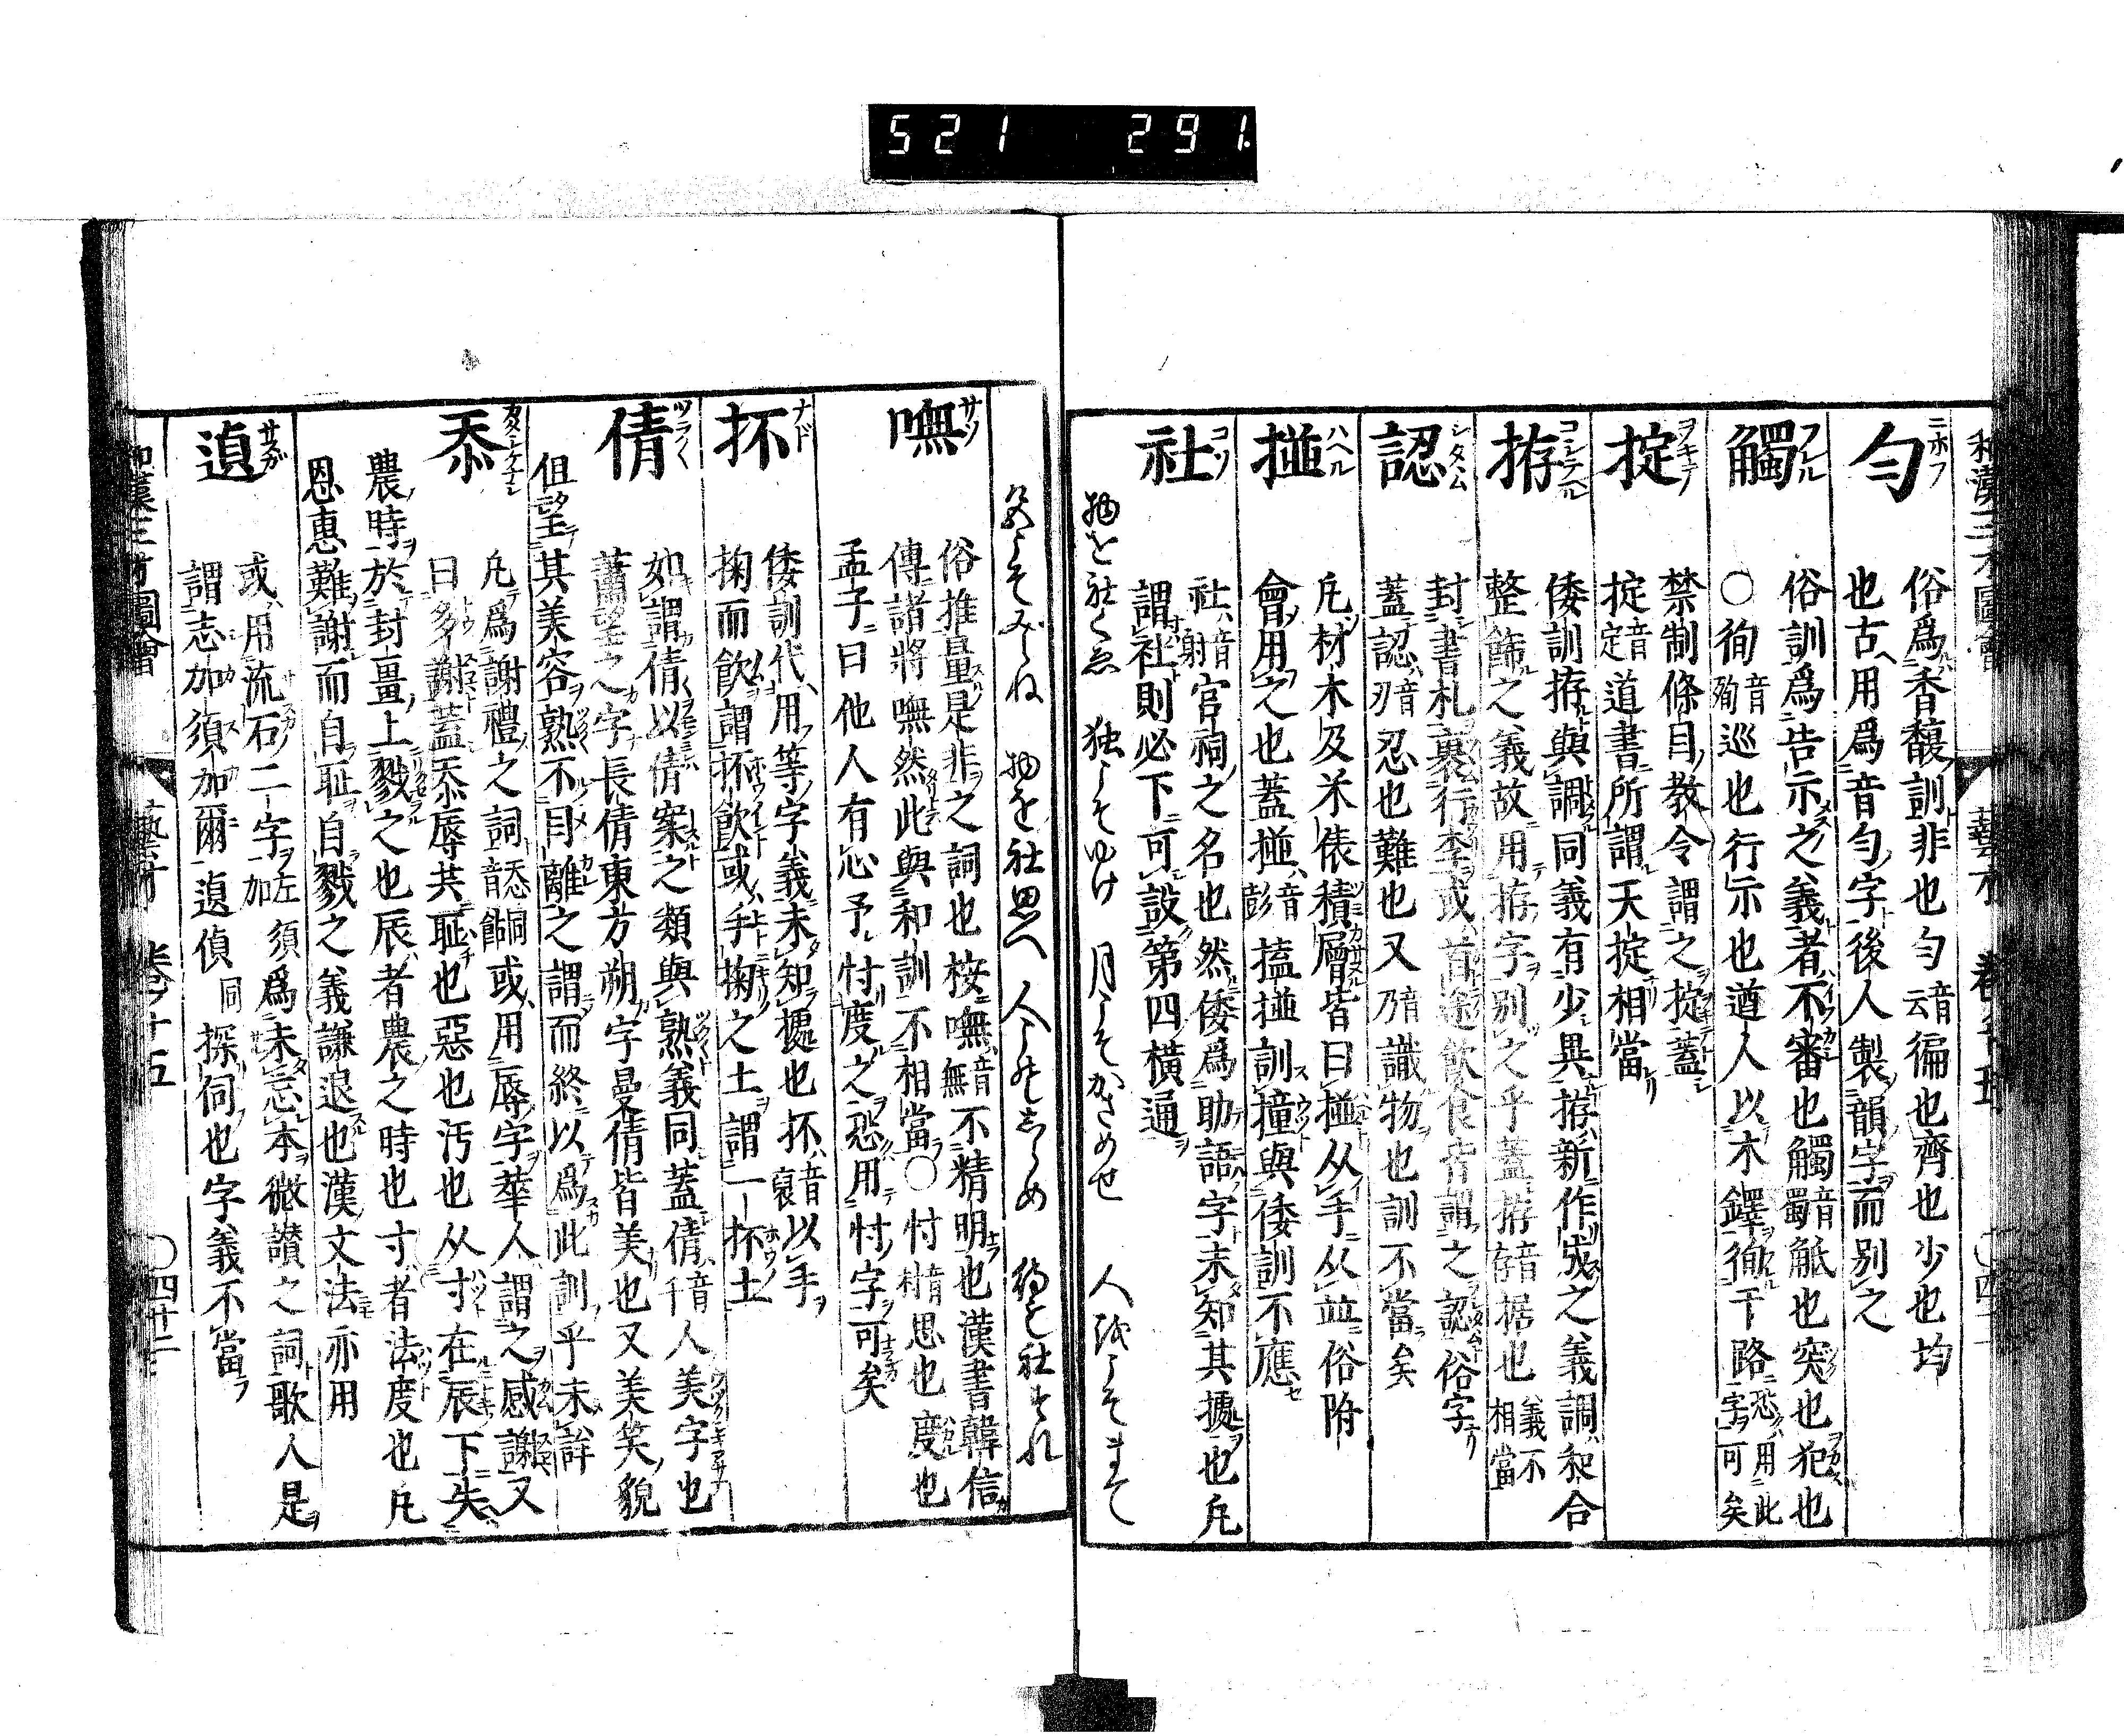 521 291.
和漢三才圖會 藝才 卷十五
匀 ニホフ
俗爲香馥訓非也匀音云徧也齊也少也均
也古用爲音匀字後人製韻字而別之
觸 フレル
俗訓爲告示之義者不審也觸音蜀觝也突也犯也
○徇音殉巡也行示也遒人以木鐸徇于路恐用此字可矣
掟 ヲキテ
禁制條目教令謂之掟蓋
掟音定道書所謂天掟相當
拵 コシラヘル
倭訓拵與調同義有少異拵新作成之義調和合
整飾之義故用拵字別之乎蓋拵音存据也義不相當
認 シタヽム
封書札裹行李或首途飲食皆謂之認俗字
蓋認音刃忍也難也又音乃識物也訓不當矣
掽 ハヘル
凡材木及米俵積層皆曰掽从手从並俗附
會用之也蓋掽音彭搕掽訓撞與倭訓不應
社 コソ
社音謝官祠之名也然倭爲助語字未知其據也凡
謂社則必下可設第四橫通
物を社くゑ 独こそゆけ 月こそかさめせ 人誠こそまて
父こそみ〴〵ね 物を社思へ 人こそしらめ 社それ
嘸 サソ
俗推量是非之詞也桉嘸音無不精明也漢書韓信
傳諸將嘸然此與和訓不相當○忖音村思也度也
孟子曰他人有心予忖度之恐用忖字可矣
抔 ナド
倭訓代用等字義未知據也抔音裒以手
掬而飲謂抔飲或手掬之土謂一抔土
倩 ツラ〳〵
如謂倩以倩案之類與熟義同蓋倩音千人美字也
蕭望之字長倩東方朔字曼倩皆美也又美笑貌
但望其美容熟不目離之謂而終以爲此訓乎未詳
忝 カタシケナシ
凡爲謝禮之詞音忝餂或用辱字華人謂之感謝又
曰多謝蓋忝辱共耻也惡也汚也从寸在辰下失
農時於封畺上戮之也辰者農之時也寸者法度也凡
恩惠難謝而自耻自戮之義謙退也漢文法亦用
遉 サスガ
或用流石二字左加須爲未忘本微讃之詞歌人是
謂志加須加爾遉偵同探伺也字義不當
和漢三才圖會 藝才 卷十五 ○四十二